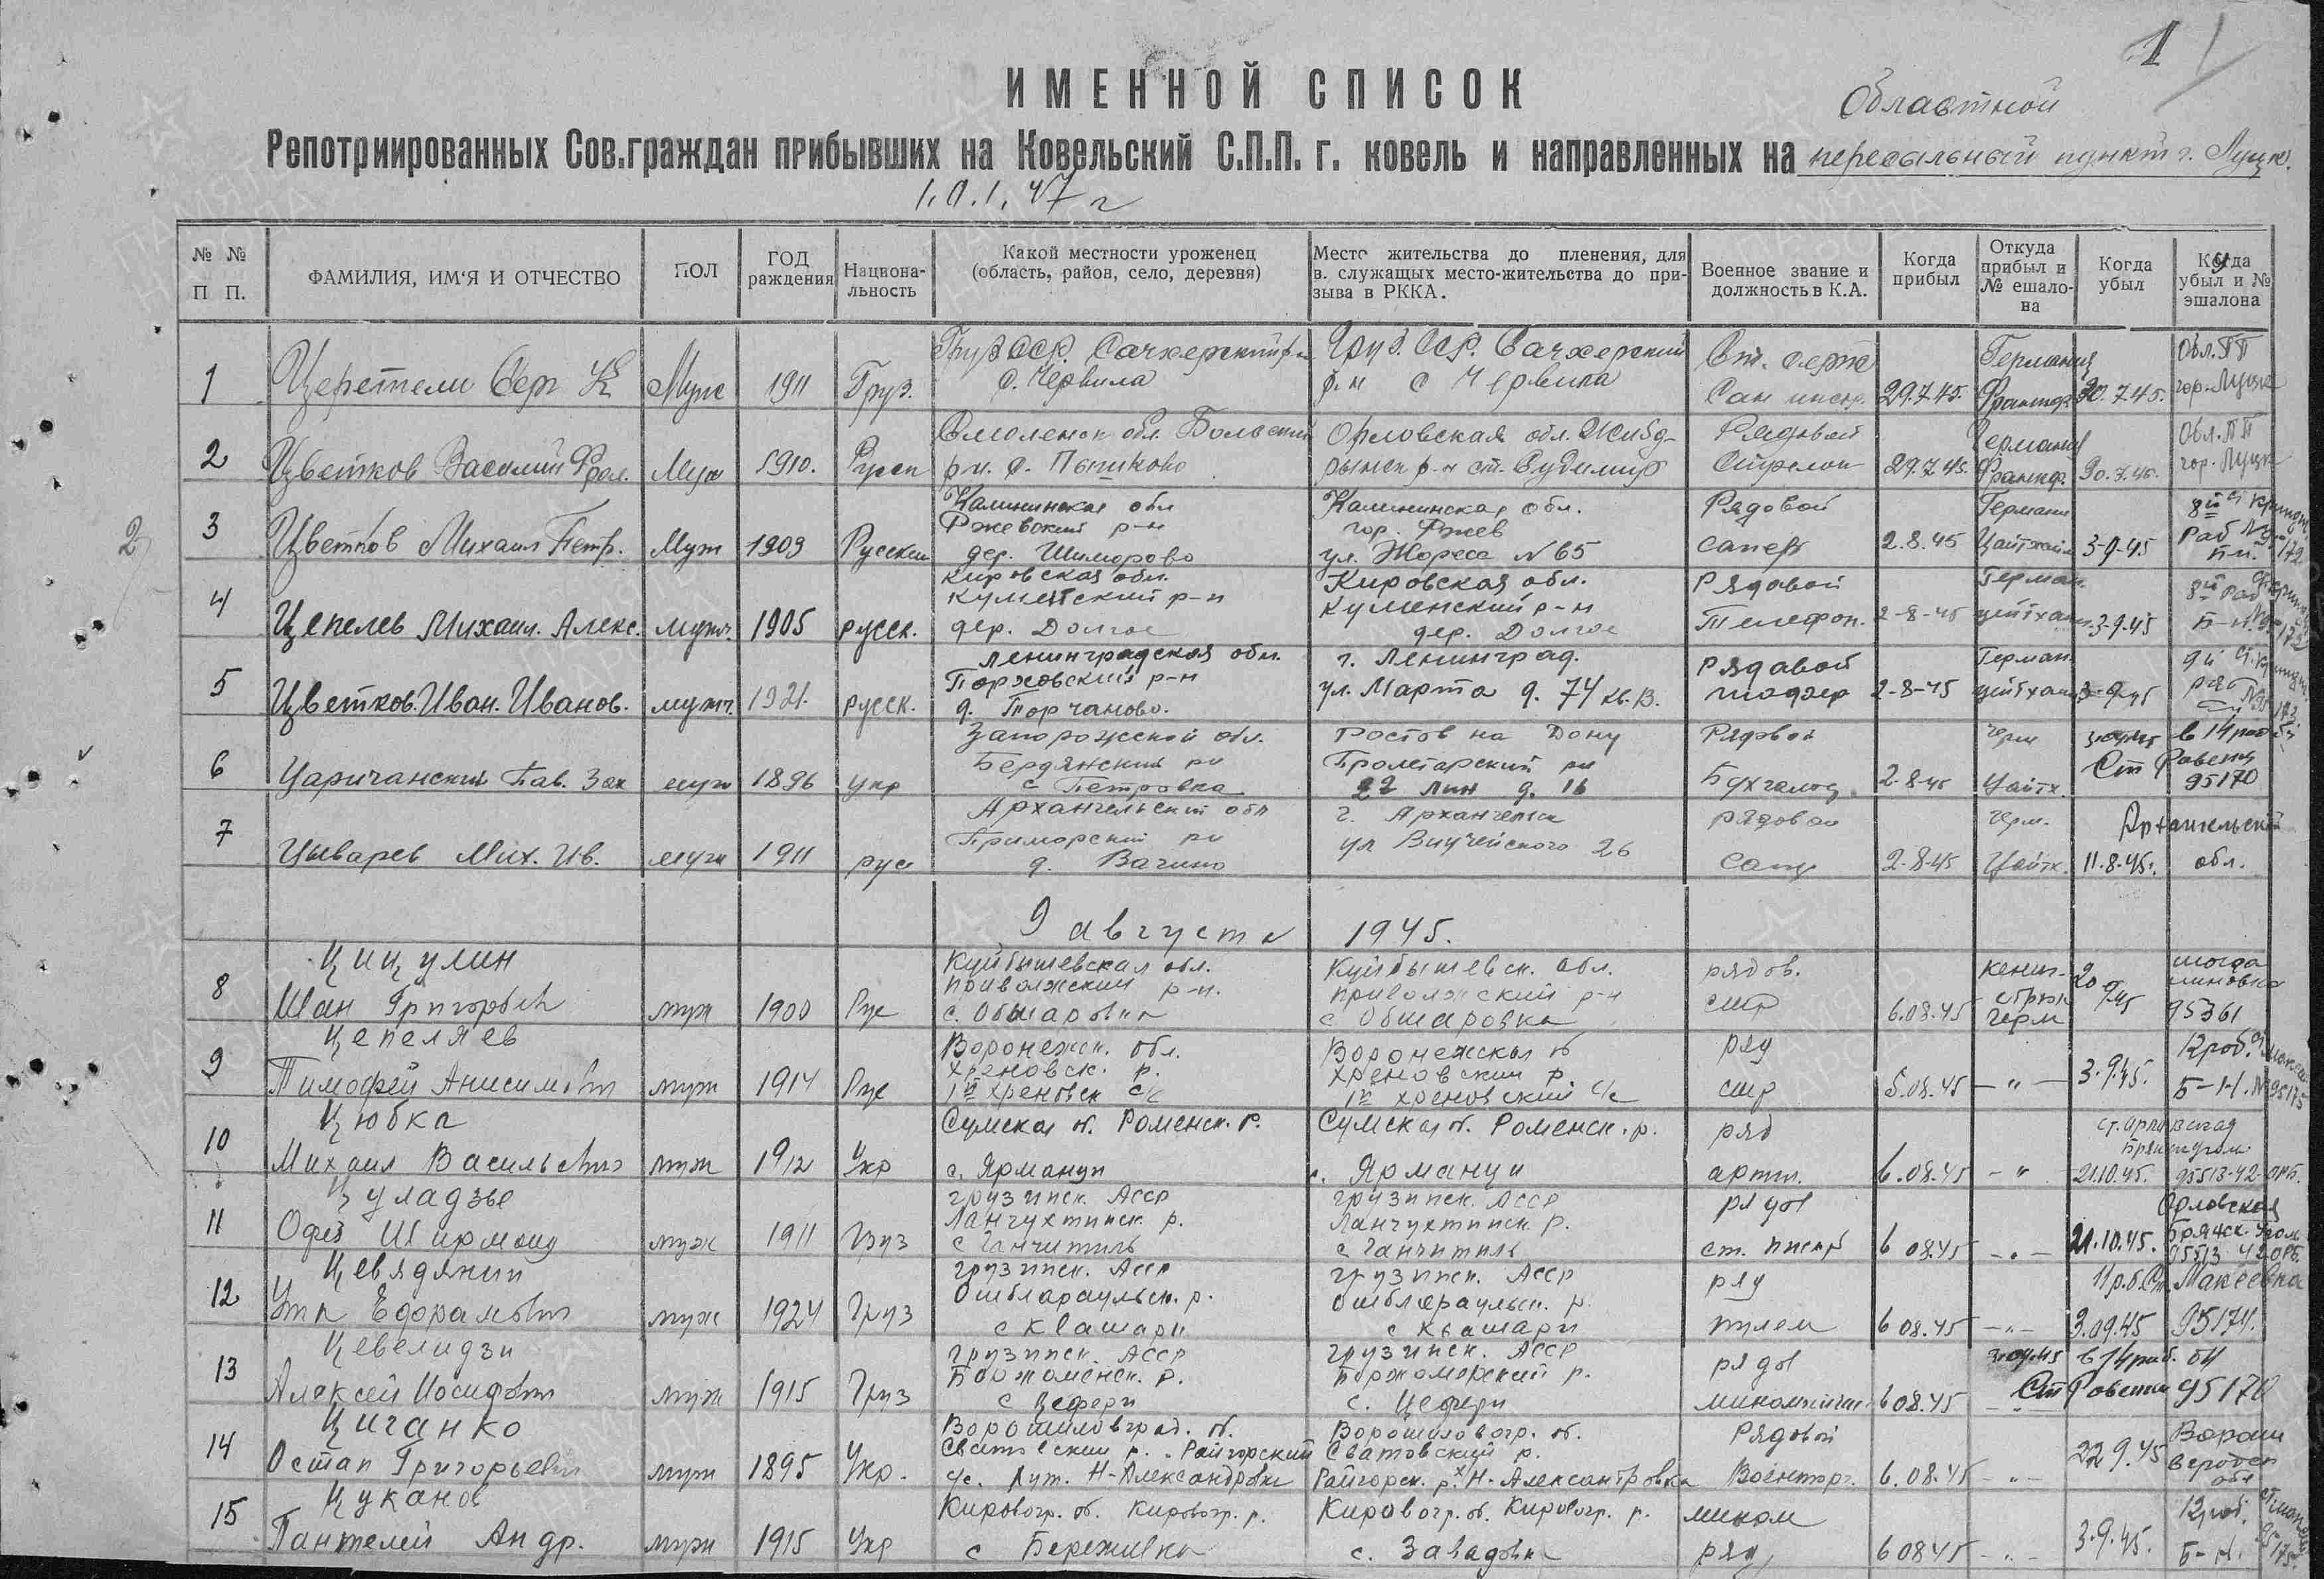 1
ИМЕННОЙ СПИСОК
Областной
Репотриированных Сов.граждан прибывших на Ковельский С.П.П. г. ковель и направленных на пересыльный пункт г. Луцк.
№ № П П.
ФАМИЛИЯ, ИМ'Я И ОТЧЕСТВО
ПОЛ
ГОД раждения
Национа-льность
Какой местности уроженец (область, район, село, деревня)
Место жительства до пленения, для в. служащих место-жительства до при-зыва в РККА.
Военное звание и должность в К.А.
Когда прибыл
Откуда прибыл и № ешало-на
Когда убыл
Когда убыл и № эшалона
1 Церетели Сер Муж 1911 Груз. Груз ССР. Сачхерский р-н с. Червила Груз. ССР. Сачхерский р-н с Червила Ст. серж Сан инстр. 29.7.45. Германия Франкф. 30.7.45. Обл. ПП гор. Луцк
2 Цветков Василий Фрол. Муж 1910. Русск Смоленск обл. Бельский р-н. д. Пышково Орловская обл. Жизд- рынск р-н ст. Судимир Рядовой Стрелок 29.7.45. Германия Франкф. 30.7.45. Обл. ПП гор. Луцк
3 Цветков Михаил Петр. Муж 1909 Русский Калининская обл Ржевский р-н дер. Шиморово Калининская обл. гор. Ржев ул. Жореса №65 Рядовой сапер 2.8.45 Германи Цайтхайн 3-9-45 8й Раб
4 Цепелев Михаил. Алекс. мужч. 1905 русск. Кировская обл. Куменский р-н дер. Долгое Кировская обл. Куменский р-н дер. Долгое Рядовой Телефон. 2-8-45 Герман. цейтхайн 3-9.45 8й раб Б-н.
5 Цветков. Иван. Иванов. мужч. 1921. русск. Ленинградская обл. Порховский р-н д. Торчаново. г. Ленинград. ул. Марта д. 74 кв. В. Рядовой шофер 2-8-45 Герман. цейтхайн 3-9-45 9й раб
6 Царичанский Пав. Зах муж 1896 укр Запорожской обл. Бердянский рн с Петровка Ростов на Дону Пролетарский рн 22 лин д. 16 Рядовой Бухгалтер 2-8-45 герм Цайтх. 3.09.45 в 14 раб Ст Ровеньки 95170
7 Цыварев Мих. Ив. муж 1911 рус Архангельский обл Приморский рн д. Вагино г. Архангельск ул Выучейского 26 рядовой Сап 2-8-45 герм. Цайтх. 11.8.45г. Архангельской обл.
9 августа 1945.
8 Цицулин Иван Григорьев муж 1900 Рус Куйбышевская обл. приволжский р-н. с. Обшаровка Куйбышевск. обл. приволжский р-н с Обшаровка рядов. стр 6.08.45 герм 20 9/45 95361
9 Цепеляев Тимофей Анисимович муж 1914 Рус Воронежск. обл. Хреновск. р. 1й Хреновск с/с Воронежская об Хреновский р. 1й хреновский с/с ряд стр 6.08.45 — " — 3.9.45. 12 роб. Б-Н. №95175
10 Цюбка Михаил Васильевич муж 1912 Укр Сумская об. Роменск. р. с. Ярманци Сумская об. Роменск. р. с. Ярманци ряд артил. 6.08.45 — " 21.10.45. 95513-42 ОРБ.
11 Цуладзе муж 1911 Груз грузинск. Асср Ланчхутинск р. с Ганчитиль грузинск. Асср Ланчхутинск р. с Ганчитиль рядов ст. писар 6 08.45 — " — 21.10.45. Орловская 95513 42 ОРБ.
12 Цевядянин муж 1924 Груз грузинск. Асср с Квашари грузинск. Асср с Квашари ряд пулем 6 08.45 — " — 3.09.45 11 р.б. Ст. Макеевка 95174.
13 Цевелидзи Алексей Иосифович муж 1915 Груз грузинск. Асср Боржоменск. р. с Цефери грузинск. Асср Боржоморский р. с. Цефери рядов минометчик 6 08.45 3.09.45 в 14 раб. бн Ст Ровеньки 95170
14 Циганко Остап Григорьевич муж 1895 Укр. Ворошиловград. об. Сватовский р. Райгорский с/с. хут. Н-Александровка Ворошиловогр. об. Сватовский р. Райгорск. р. Н-Александровка Рядовой Военторг. 6.08.45 — " — 22 9.45 обл
15 Цуканов Пантелей Андр. муж 1915 Укр Кировогр. об. Кировогр. р. с Бережинка Кировогр. об. Кировогр. р. с. Завадовка миком ряд 6 08 45 — " — 3.9.45. 12 роб. Б-Н.